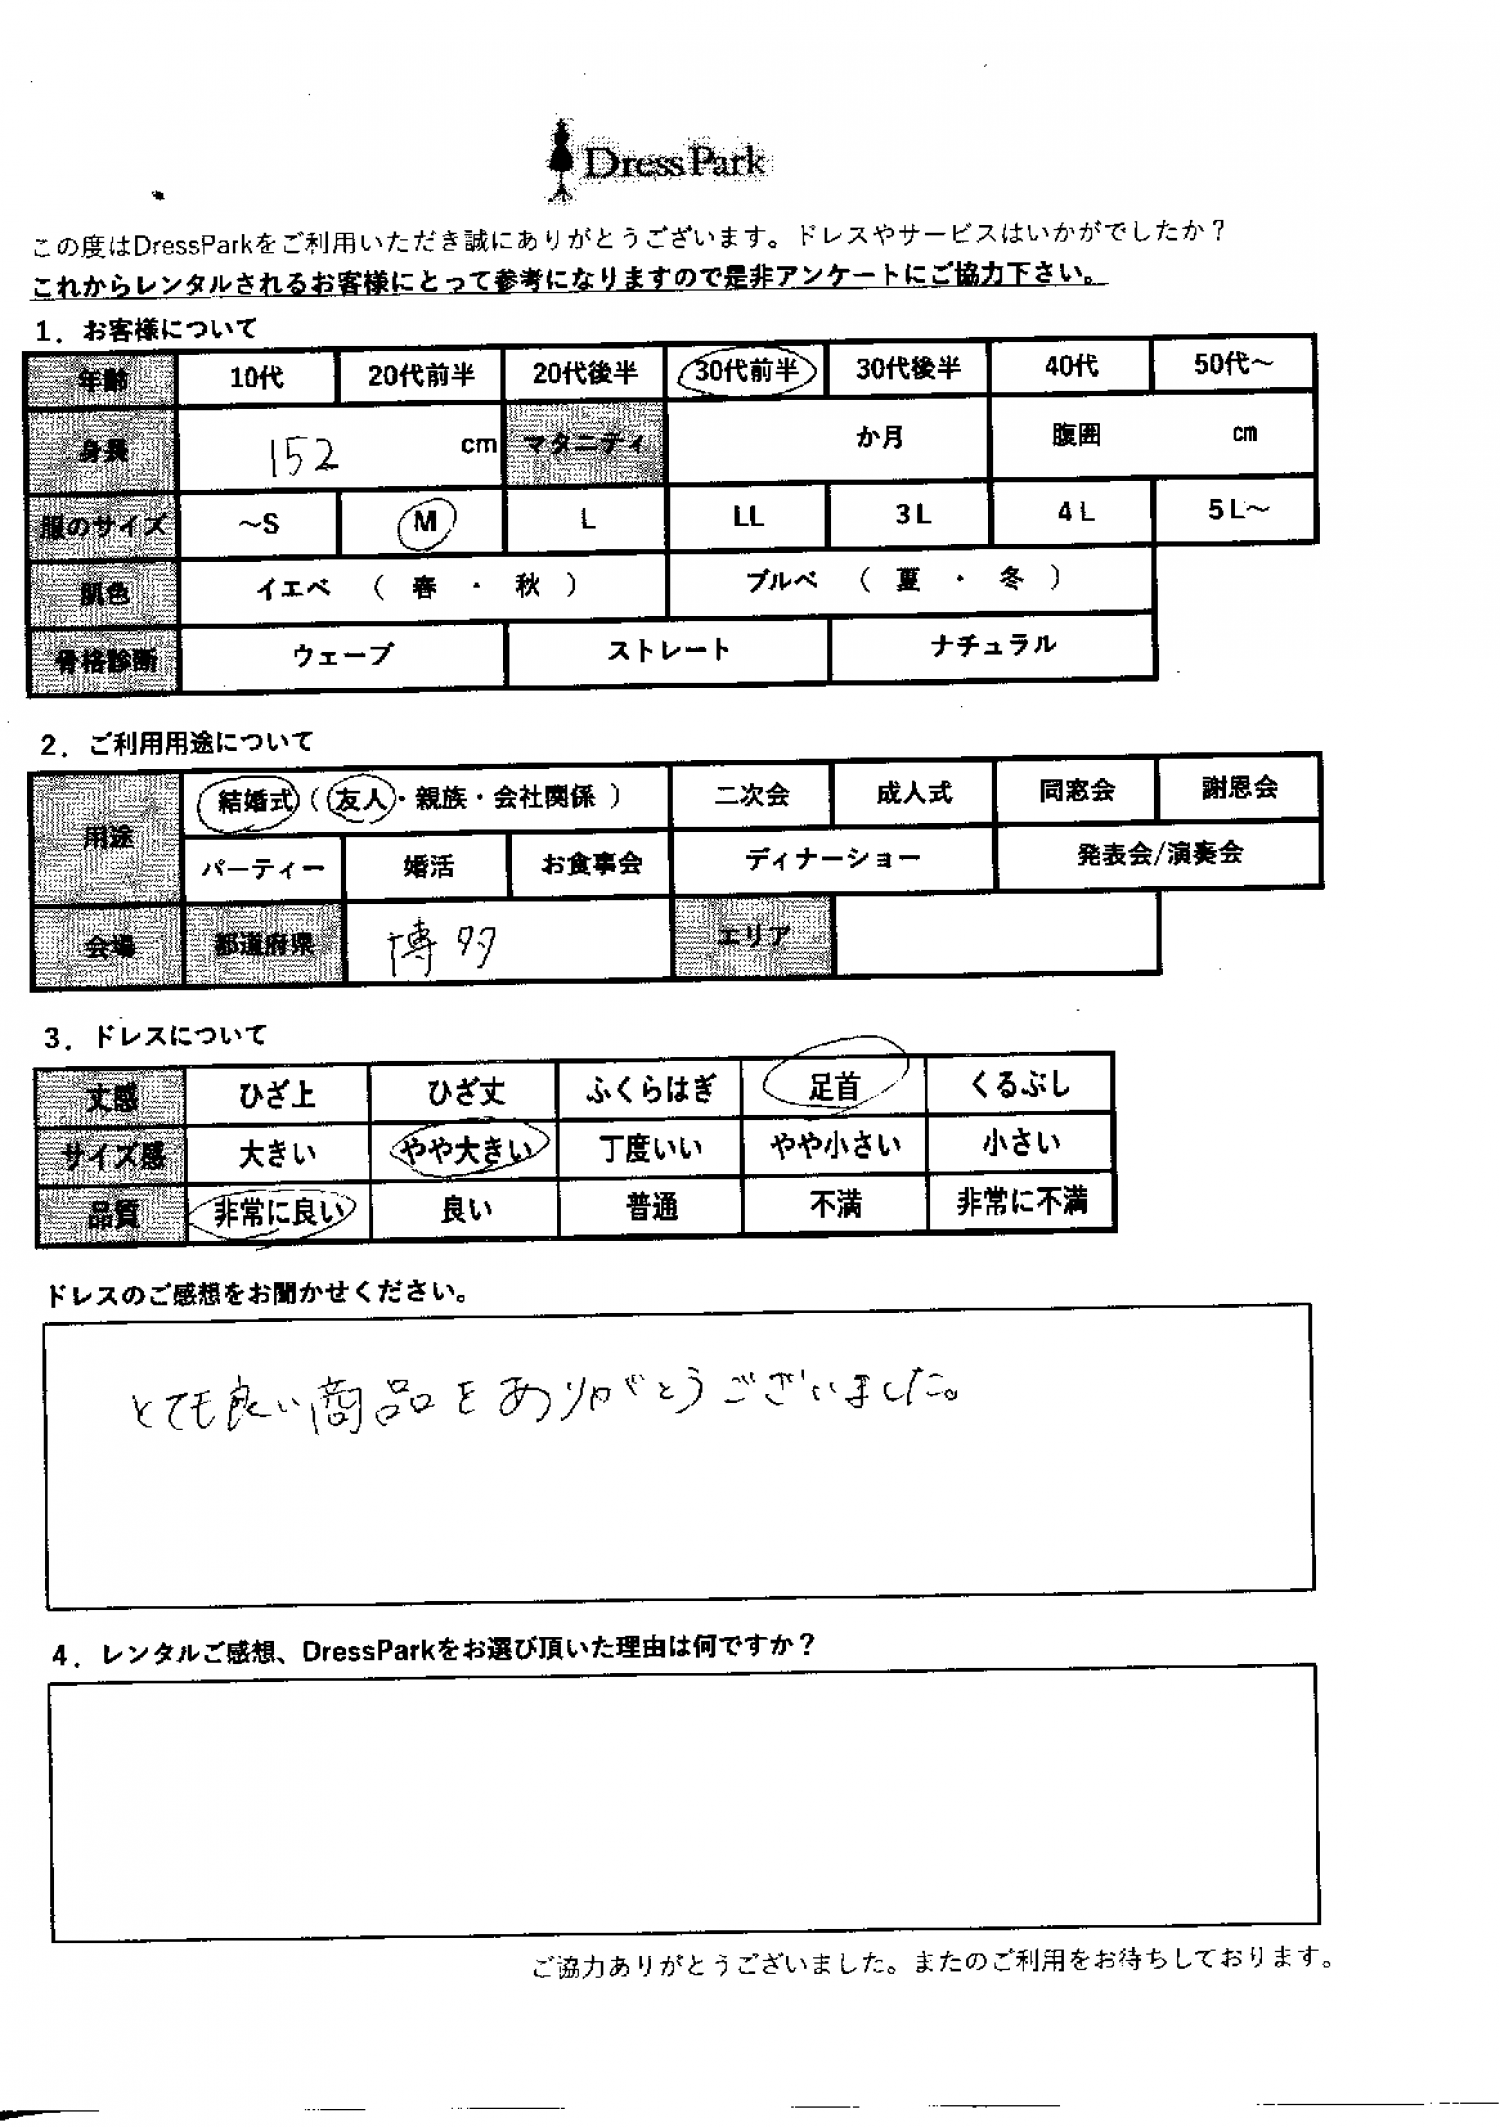 DressPark
この度はDressParkをご利用いただき誠にありがとうございます。ドレスやサービスはいかがでしたか？
これからレンタルされるお客様にとって参考になりますので是非アンケートにご協力下さい。
1．お客様について
年齢 10代 20代前半 20代後半 30代前半 30代後半 40代 50代～
身長 152 cm マタニティ か月 腹囲 cm
服のサイズ ～S M L LL 3L 4L 5L～
肌色 イエベ （ 春 ・ 秋 ） ブルベ （ 夏 ・ 冬 ）
骨格診断 ウェーブ ストレート ナチュラル
2．ご利用用途について
用途 結婚式（友人・親族・会社関係 ） 二次会 成人式 同窓会 謝恩会
パーティー 婚活 お食事会 ディナーショー 発表会/演奏会
会場 都道府県 博多 エリア
3．ドレスについて
丈感 ひざ上 ひざ丈 ふくらはぎ 足首 くるぶし
サイズ感 大きい やや大きい 丁度いい やや小さい 小さい
品質 非常に良い 良い 普通 不満 非常に不満
ドレスのご感想をお聞かせください。
とても良い商品をありがとうございました。
4．レンタルご感想、DressParkをお選び頂いた理由は何ですか？
ご協力ありがとうございました。またのご利用をお待ちしております。